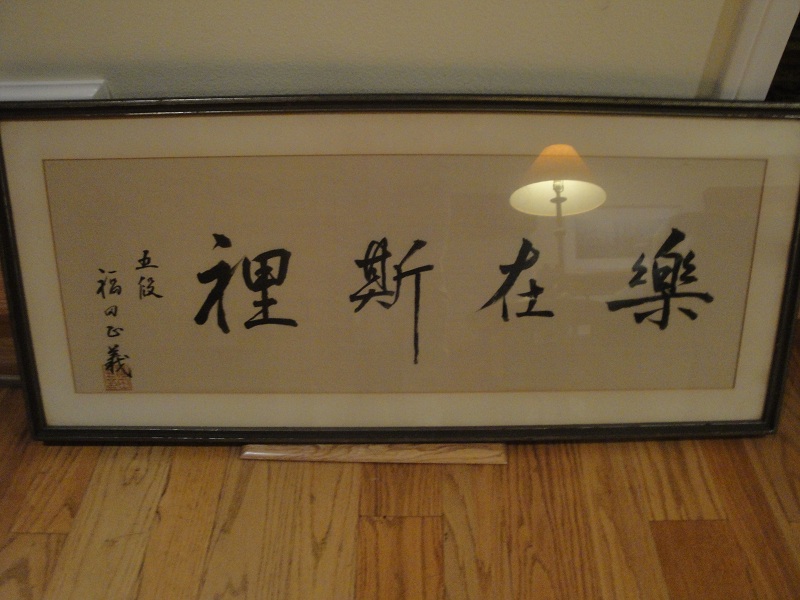 樂在斯裡
五段
福田正義